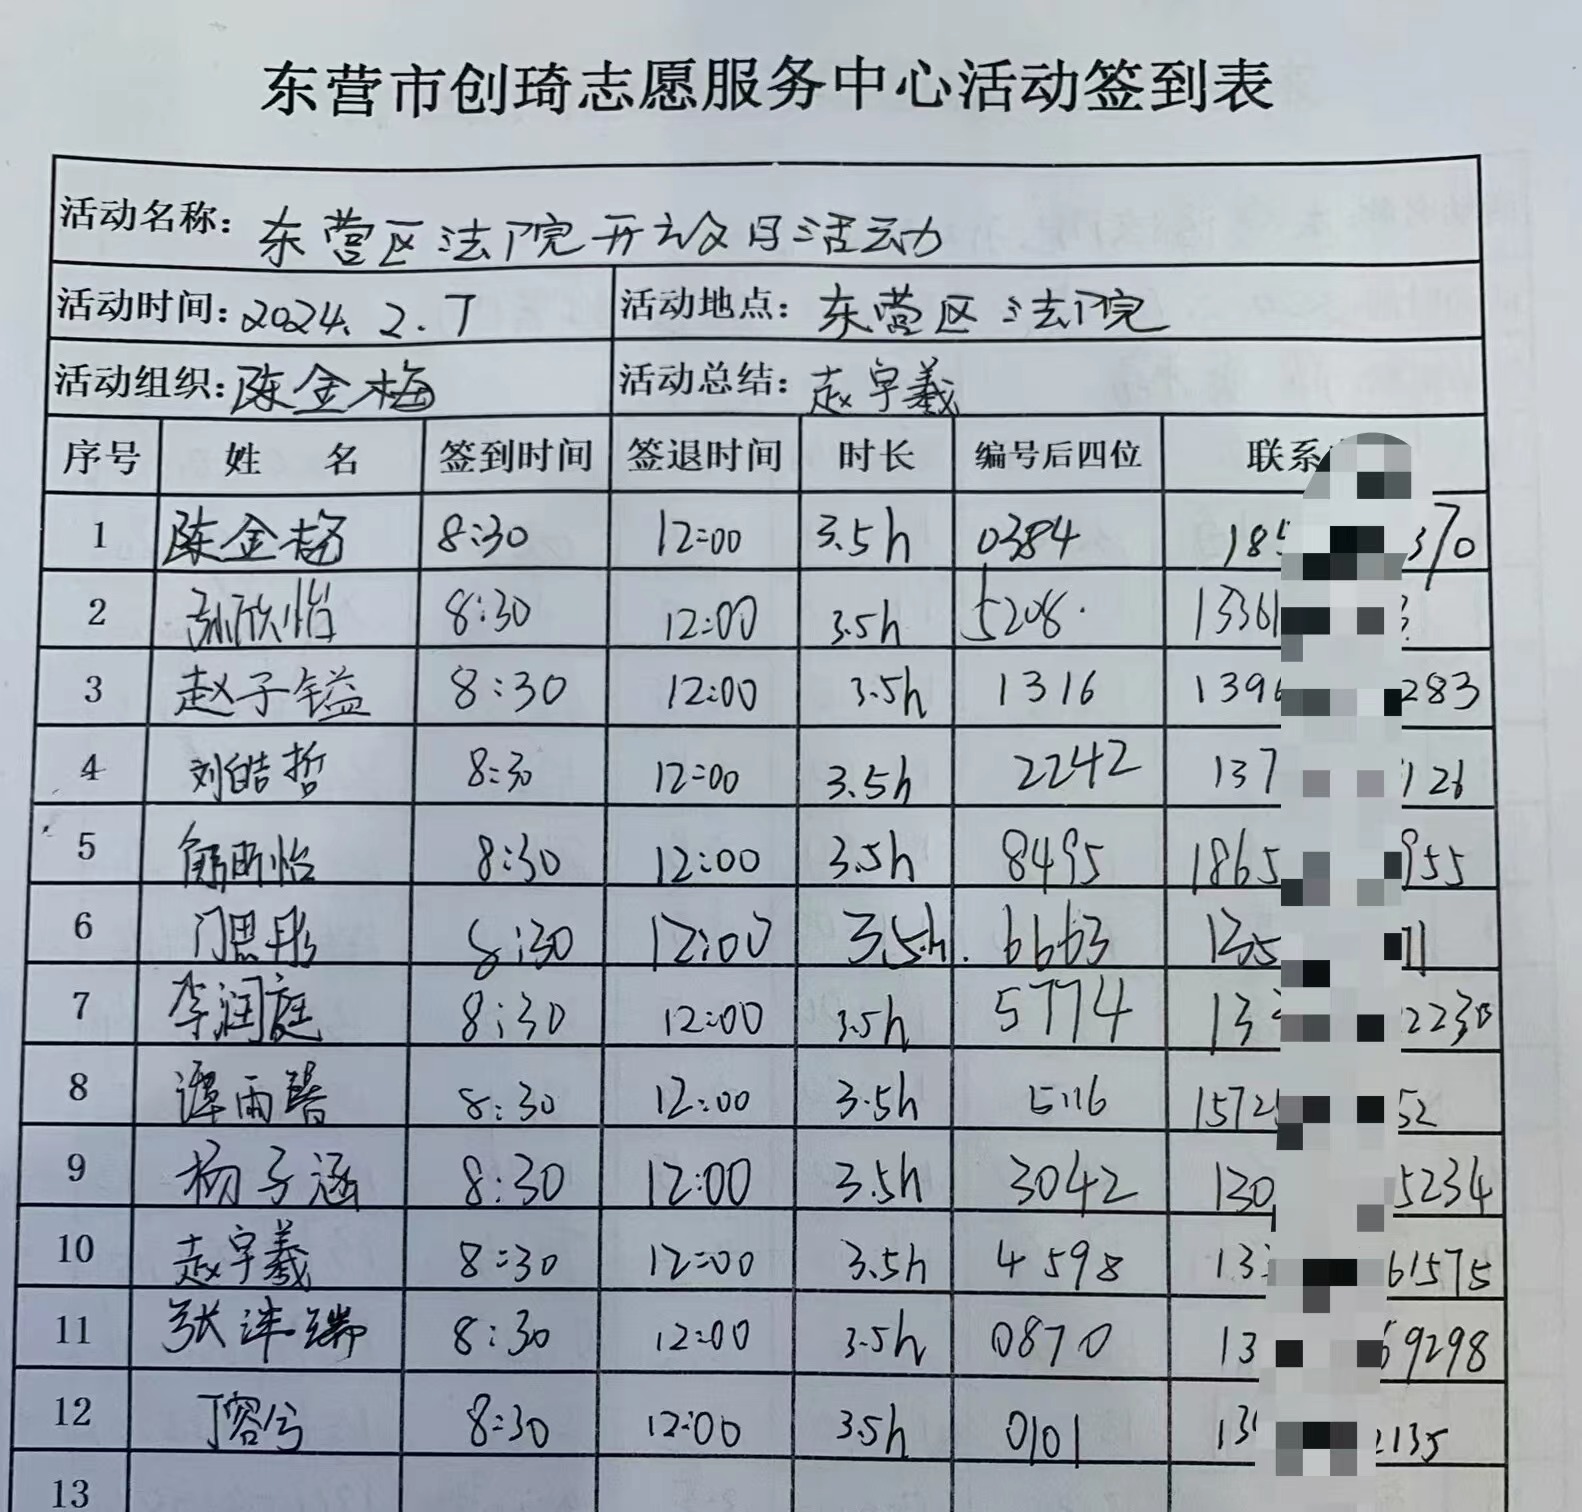 东营市创琦志愿服务中心活动签到表
活动名称: 东营区法院开放日活动
活动时间: 2024.2.7 活动地点: 东营区法院
活动组织: 陈金梅 活动总结: 赵宇羲
序号 姓名 签到时间 签退时间 时长 编号后四位 联系
1 陈金梅 8:30 12:00 3.5h 0384 185 370
2 孙欣怡 8:30 12:00 3.5h 5208 1336
3 赵子镒 8:30 12:00 3.5h 1316 139 283
4 刘皓哲 8:30 12:00 3.5h 2242 137 126
5 8:30 12:00 3.5h 8495 1865 955
6 门思彤 8:30 12:00 3.5h 6663 135 11
7 李润庭 8:30 12:00 3.5h 5774 13 2230
8 谭雨馨 8:30 12:00 3.5h 5116 1572 52
9 杨子涵 8:30 12:00 3.5h 3042 130 5234
10 赵宇羲 8:30 12:00 3.5h 4598 13 61575
11 张沣瑞 8:30 12:00 3.5h 0870 13 69298
12 丁容兮 8:30 12:00 3.5h 0101 13 2135
13